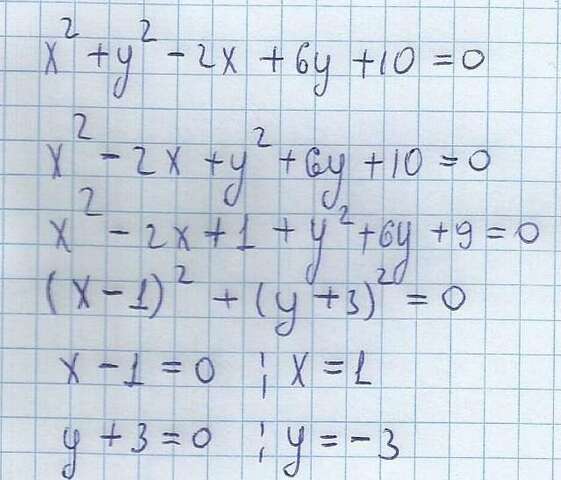 x² + y² - 2x + 6y + 10 = 0
x² - 2x + y² + 6y + 10 = 0
x² - 2x + 1 + y² + 6y + 9 = 0
(x - 1)² + (y + 3)² = 0
x - 1 = 0 ; x = 1
y + 3 = 0 ; y = -3